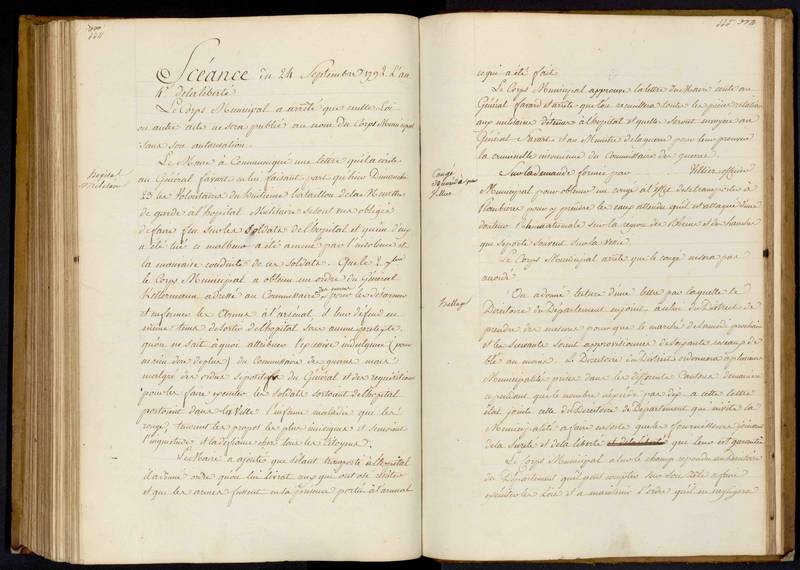 Scéance du 24 Septembre 1792 L'an
4e de la liberté
Le Corps Municipal a arrêté que nulle Loi
ou autre acte ne sera publié au nom du Corps Municipal
sans son autorisation.
hopital
Militaire
Le Maire a Communiqué une lettre qu'il a écrite
au Général favart en lui faisant part qu'hier Dimanche
23 les Volontaires du huitieme bataillon de la Meurthe
de garde à l'hopital Militaire se sont vus obligés
de faire feu sur les Soldats de l'hopital et qu'un d'eux
a été tué ce malheur a été amené par l'insolence et
la mauvaise conduite de ces soldats. Que le
le Corps Municipal a obtenu un ordre du Général
Kellermann adressé au Commissaire des guerres pour les désarmer
et enfermer les Armes à l'arsénal, et leur défend en
même tems de sortir de l'hopital sous aucun prétexte
qu'on ne sait à quoi attribuer l'excessive indulgence (pour
ne rien dire de plus) du Commissaire des guerres mais
malgré des ordres si positifs du Général et des réquisitions
pour les faire exécuter les soldats sortaient de l'hopital
portaient dans la Ville l'infame maladie qui les
ronge, tenaient les propos les plus inciviques et semaient
l'inquiétude et la défiance chez tous les Citoyens.
Le Maire a ajouté que s'étant transporté à l'hopital
il a donné ordre qu'on lui livrat ceux qui ont osé résister
et que les armes fussent en sa présence portées à l'arsenal
ce qui a été fait.
Le Corps Municipal approuve la lettre du Maire écrite au
Général favart et arrête que lui recueillera toutes les pièces relatives
aux militaires détenus à l'hopital et qu'elles seront envoyées au
Général favart et au Ministre de la guerre pour leur prouver
la criminelle insouciance du Commissaire des guerres.
Congé
Villier
Sur la demande formée par Villier, officier
Municipal pour obtenir un congé à l'effet de se transporter à
Plombiere pour y prendre les eaux attendu qu'il est attaqué d'une
douleur rhumatismale sur la region des Reins et des hanches
qui se porte souvent sur la Vessie.
Le Corps Municipal arrête que le congé ne sera pas
accordé.
On a donné lecture d'une lettre par laquelle le
Directoire du Departement enjoint à celui du District de
prendre des mesures pour que le marché de lundi prochain
et les Suivants soient approvisionnés de soixante sacs de
blé au moins. Le Directoire du District ordonnera à plusieurs
Municipalités prises dans les différents Cantons d'emmener
cependant que le nombre n'excède pas dix à cette lettre
étoit jointe celle du Directoire du Departement qui invite la
Municipalité a faire ensorte que les fournisseurs jouissent
de la Sureté et de la liberté et de la liberté que leur est garantie
Le Corps Municipal a sur le champ repondu au Directoire
du Departement qu'il peut compter sur son zèle à faire
exécuter les Loix et a maintenir l'ordre qu'il ne negligera